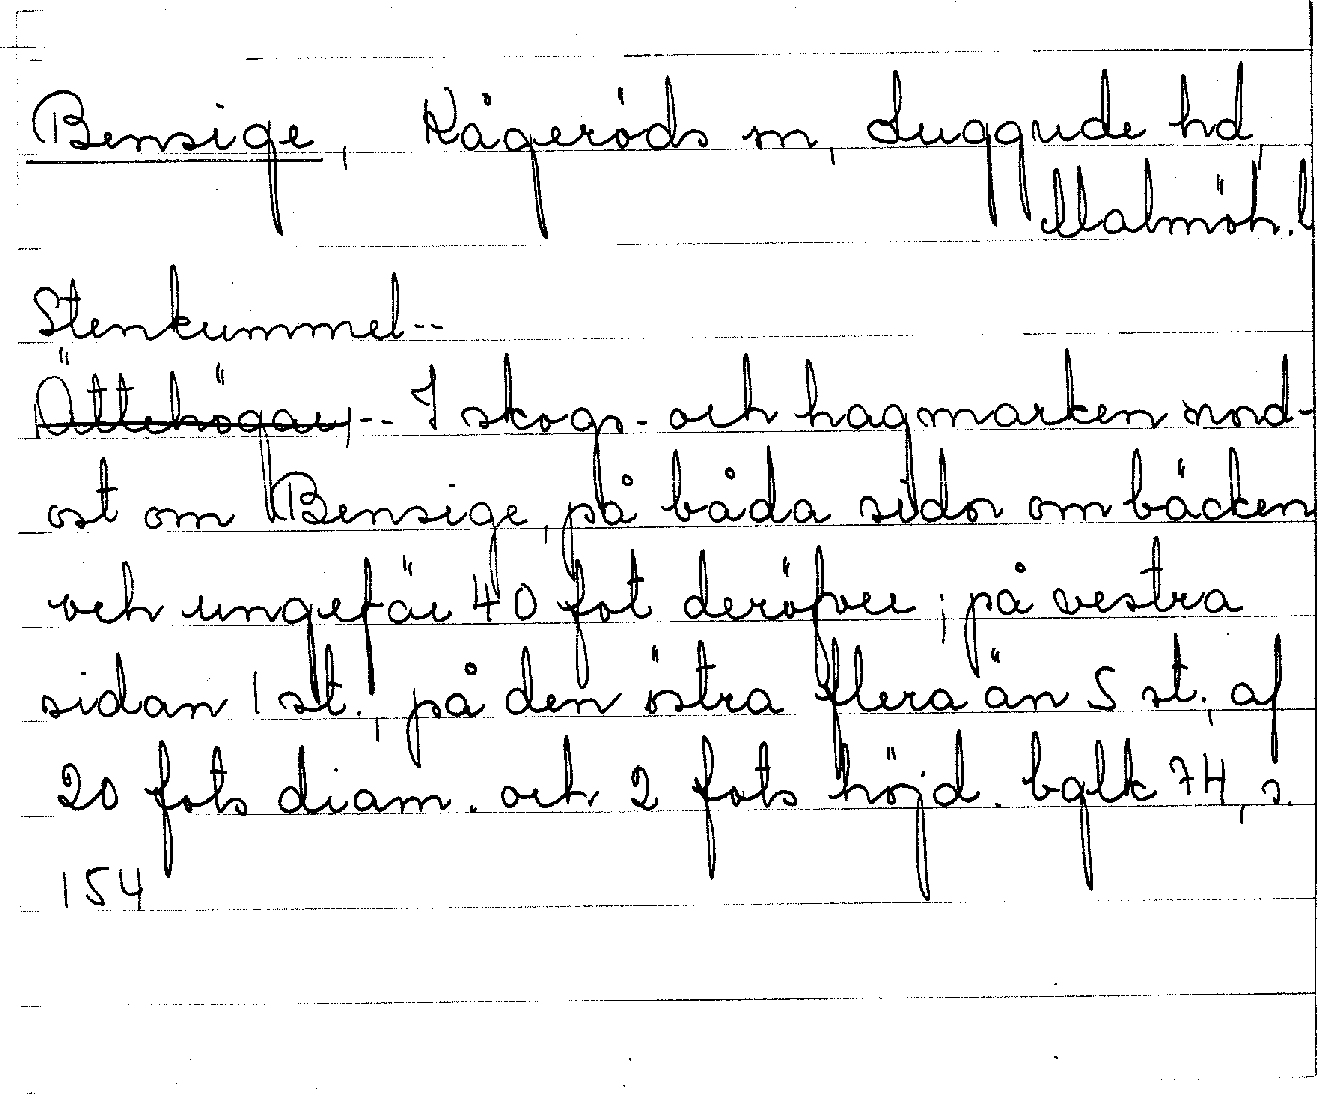 Bensige, Kågeröds sn, Luggude hd,
Malmöh. l
Stenkummel--
Ättehögar,-- I skogs- och hagmarken nord-
ost om Bensige, på båda sidor om bäcken
och ungefär 40 fot deröfver; på vestra
sidan 1 st., på den östra flera än 5 st., af
20 fots diam. och 2 fots höjd. bglk 74, s.
154